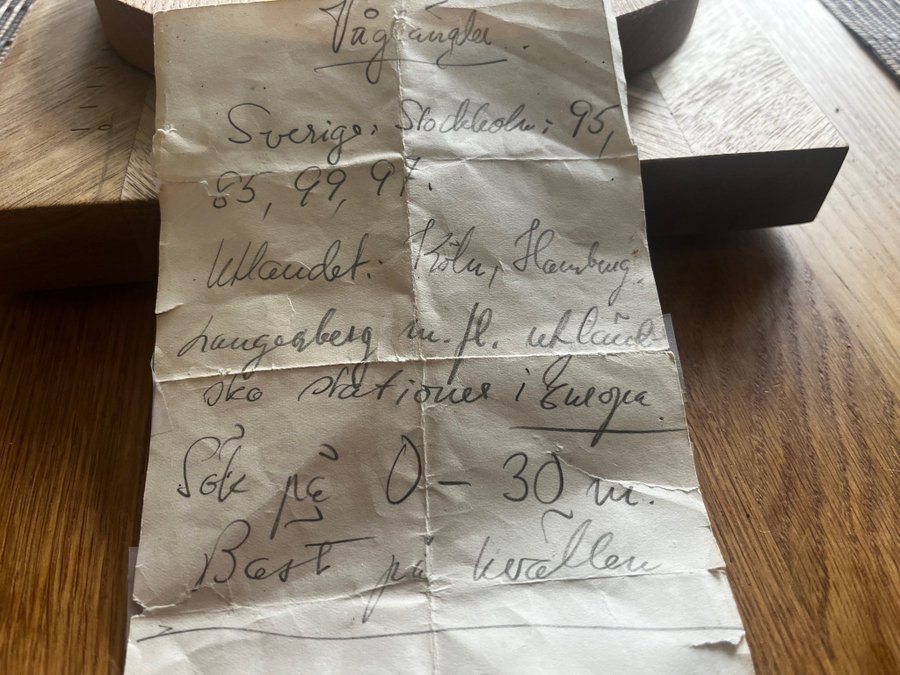 Våglängder.
Sverige: Stockholm: 95,
85, 99, 97.
Utlandet: Köln, Hamburg,
Langenberg m.fl. utländ-
ska stationer i Europa.
Sök på 0 – 30 m.
Bäst på kvällen